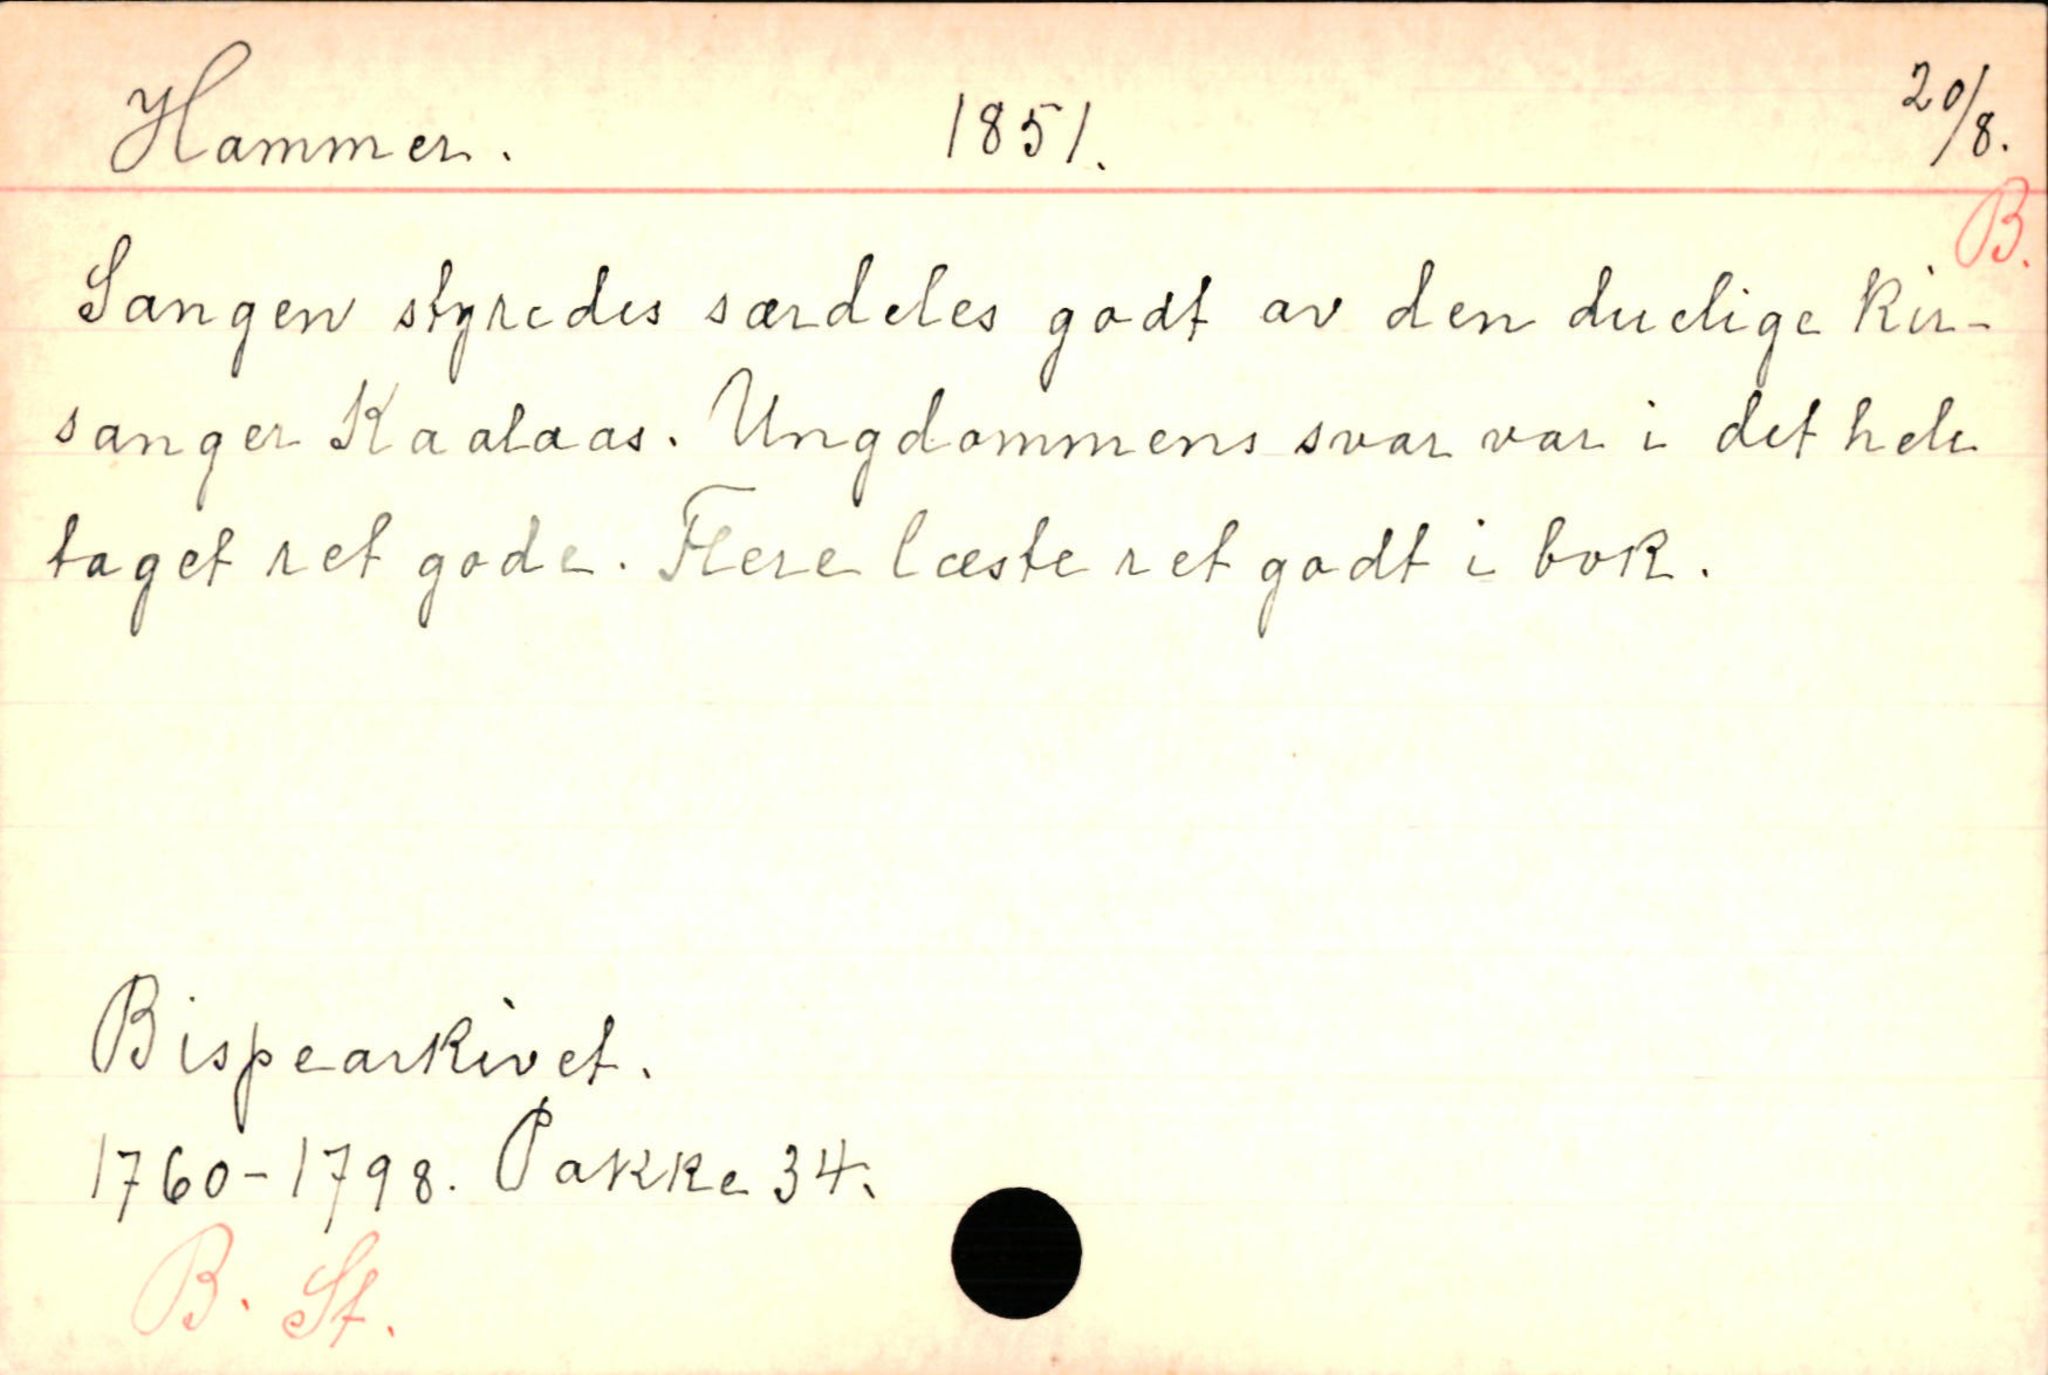 Hammer. 1851. 20/8.
B.
Sangen styredes særdeles godt av den duelige Kir-
sanger Kaalaas. Ungdommens svar var i det hele
taget ret gode. Flere læste ret godt i bok.
Bispearkivet.
1760-1798. Pakke 34.
B. St.